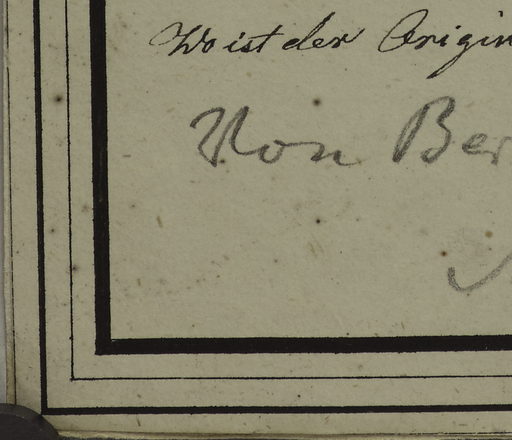 Wo ist der Origin
Von Ber